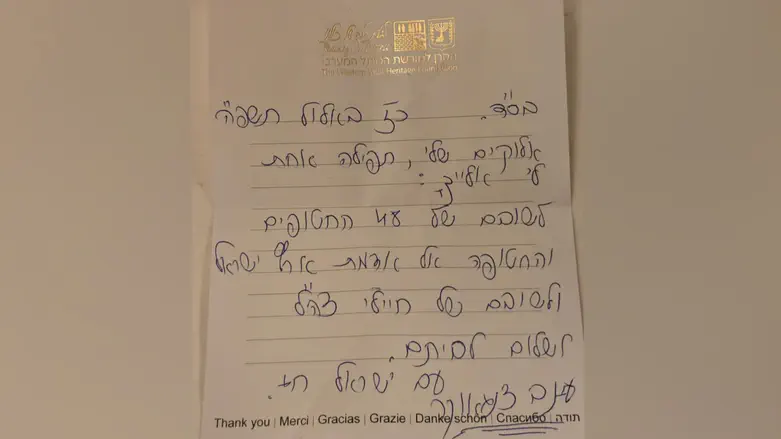 הקרן למורשת הכותל המערבי
The Western Wall Heritage Foundation
בס"ד. כז באלול תשפ"ה
אלוקים שלי, תפילה אחת
לי אלייך:
לשובם של 47 החטופים
והחטופה אל אדמת ארץ ישראל
ולשובם של חיילי צה"ל
לשלום לביתם.
עם ישראל חי.
עינב צנגאוקר
Thank you | Merci | Gracias | Grazie | Danke schön | Спасибо | תודה